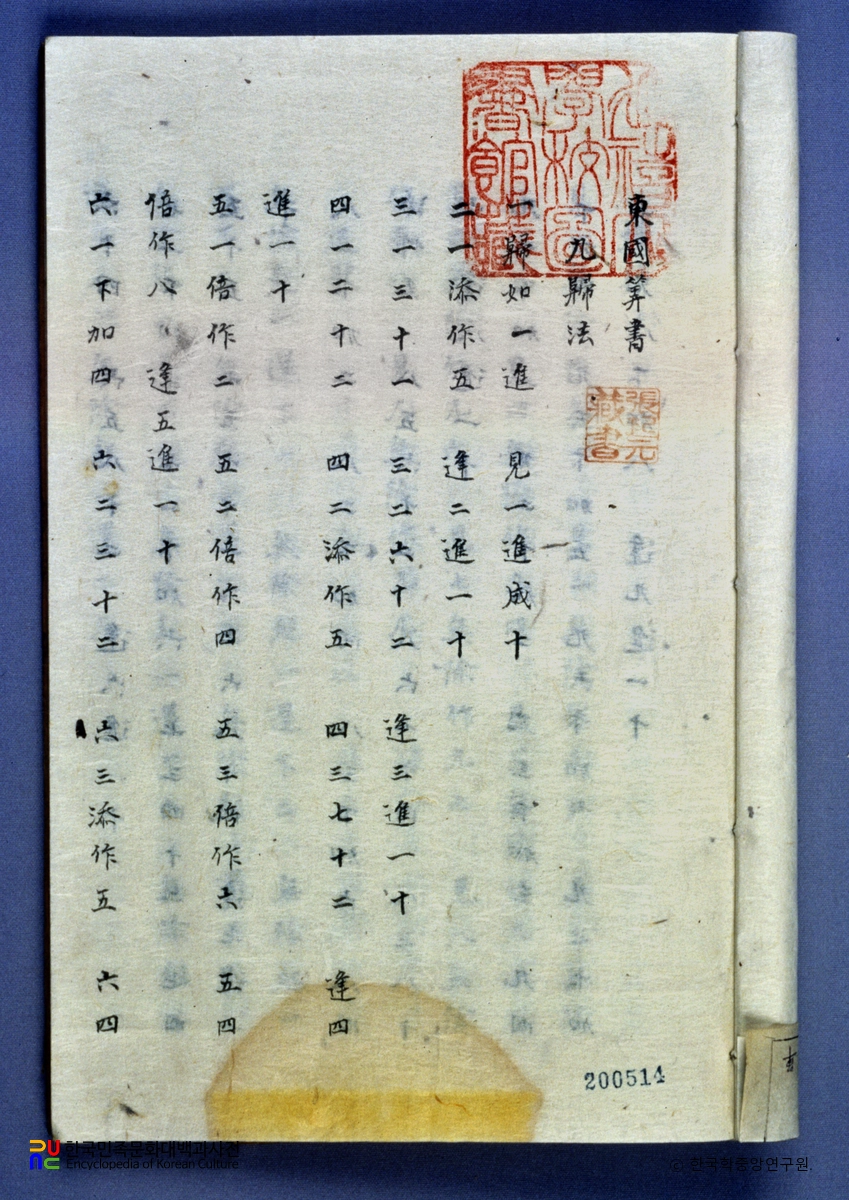 東國算書
九歸法
一歸如一進 見一進成十
二一添作五 逢二進一十
三一三十一 三二六十二 逢三進一十
四一二十二 四二添作五 四三七十二 逢四
進一十
五一倍作二 五二倍作四 五三倍作六 五四
倍作八 逢五進一十
六一下加四 六二三十二 六三添作五 六四
張
藏書
200514
한국민족문화대백과사전
Encyclopedia of Korean Culture
© 한국학중앙연구원.